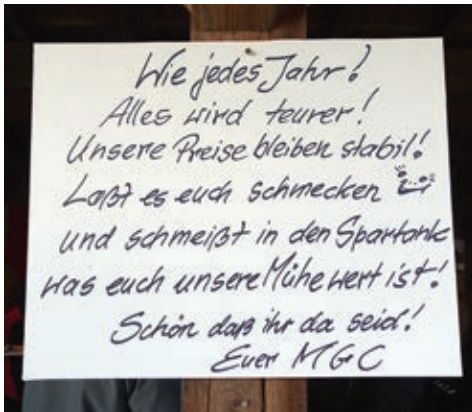 Wie jedes Jahr!
Alles wird teurer!
Unsere Preise bleiben stabil!
Laßt es euch schmecken
und schmeißt in den Spartank
was euch unsere Mühe wert ist!
Schön daß ihr da seid!
Euer MGC